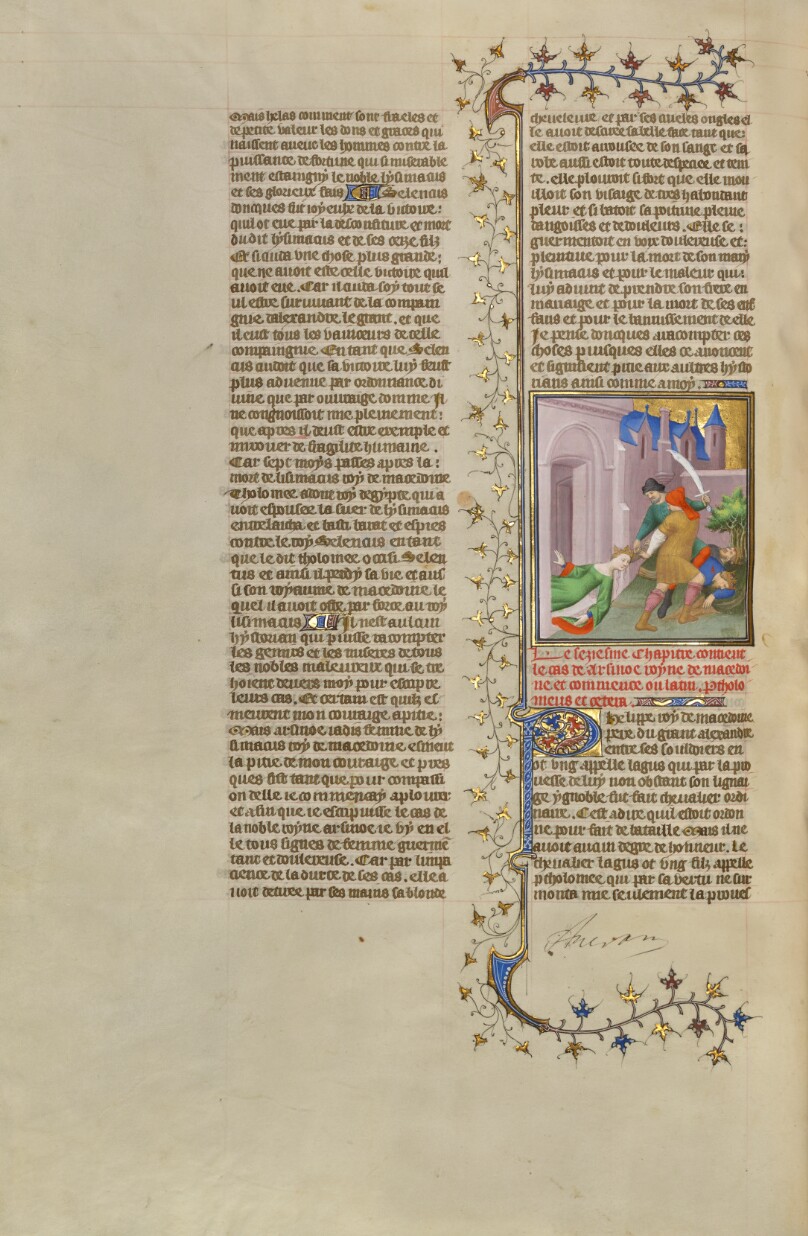 Mais helas comment sont fraeles et
de petite valeur les dons et graces qui
naissent avecue les hommes contre la
puissance de fortune qui si miserable
ment estaingny le noble lysimacus
et ses glorieux fais Selencus
doncques fut ioyeulx de la victoire:
quil ot eue par la desconfiture et mort
dudit lysimacus et de ses filz
Et si cuida une chose plus grande:
que ne avoit este celle victoire quil
avoit eue. Car il cuida soy tout se
ul estre survivant de la compain
gnie dalexandre le grant. et que
il eust tous les vaincueurs de celle
compaingnie. En tant que Selen
cus cuidoit que sa victoire luy feust
plus advenue par ordonnance di
vine que par ouvraige domme Il
ne congnoissoit mie pleinement:
que apres il deust estre exemple et
mirouer de fragilite humaine.
Car sept moys passes apres la:
mort de lisimacus roy de macedoine
Tholomee adont roy degypte qui a
voit espousee la suer de lysimacus
contre le roy Selencus en tant
que le dit tholomee occist Selen
cus et ainsi il perdy sa vie et aus
si son royaume de macedoine le
quel il avoit oste par force au roy
lisimacus Il nest aucun
hystorian qui puisse racompter
les gemirs et les miseres de tous
les nobles maleureux qui se tre
hoient devers moy pour escripre
leurs cas. Et certain est quilz es
meuvent mon couraige a pitie:
Mais arsinoe iadis femme de ly
simacus roy de macedoine esmeut
la pitie de mon couraige et pres
ques fist tant que pour compassi
on delle ie commencay a plourer
et afin que ie escripvisse le cas de
la noble royne arsinoe ie vy en el
le tous signes de femme guermen
tant et douleureuse. Car par limpa
cience de la durte de ses cas. elle a
voit par ses mains sa blonde
cheveleure et par ses ongles el
le avoit desciree sa belle face tant que:
elle estoit arrousee de son sang et sa
robe aussi estoit toute despecee et rom
te. elle plouroit si fort que elle mou
illoit son visaige de tres habondant
pleur et si batoit sa poitrine pleine
dangoisses et de douleurs. Elle se:
guermentoit en voix douleureuse et:
plaintive pour la mort de son mary
lysimacus et pour le maleur qui:
luy advint de prendre son frere en
mariaige et pour la mort de ses enf
fans et pour le bannissement de elle
Je pense doncques a racompter ces
choses puisques elles denoncent
et signifient pitie aux aultres hysto
rians ainsi comme a moy.
Le seziesme Chapitre contient
le cas de Arsinoe royne de macedoi
ne et commence ou latin. ptholo
meus et cetera.
Phelippe roy de macedoine
pere du grant alexandre
entre ses souldoiers en
ot ung appelle lagus qui par la pro
uesse de luy non obstant son lignai
ge ygnoble fut fait chevalier ordi
naire. Cest a dire quil estoit ordon
ne pour fait de bataille Mais il ne
avoit aucun degre de honneur. Le
chevalier lagus ot ung filz appelle
ptholomee qui par sa vertu ne sur
monta mie seulement la proues